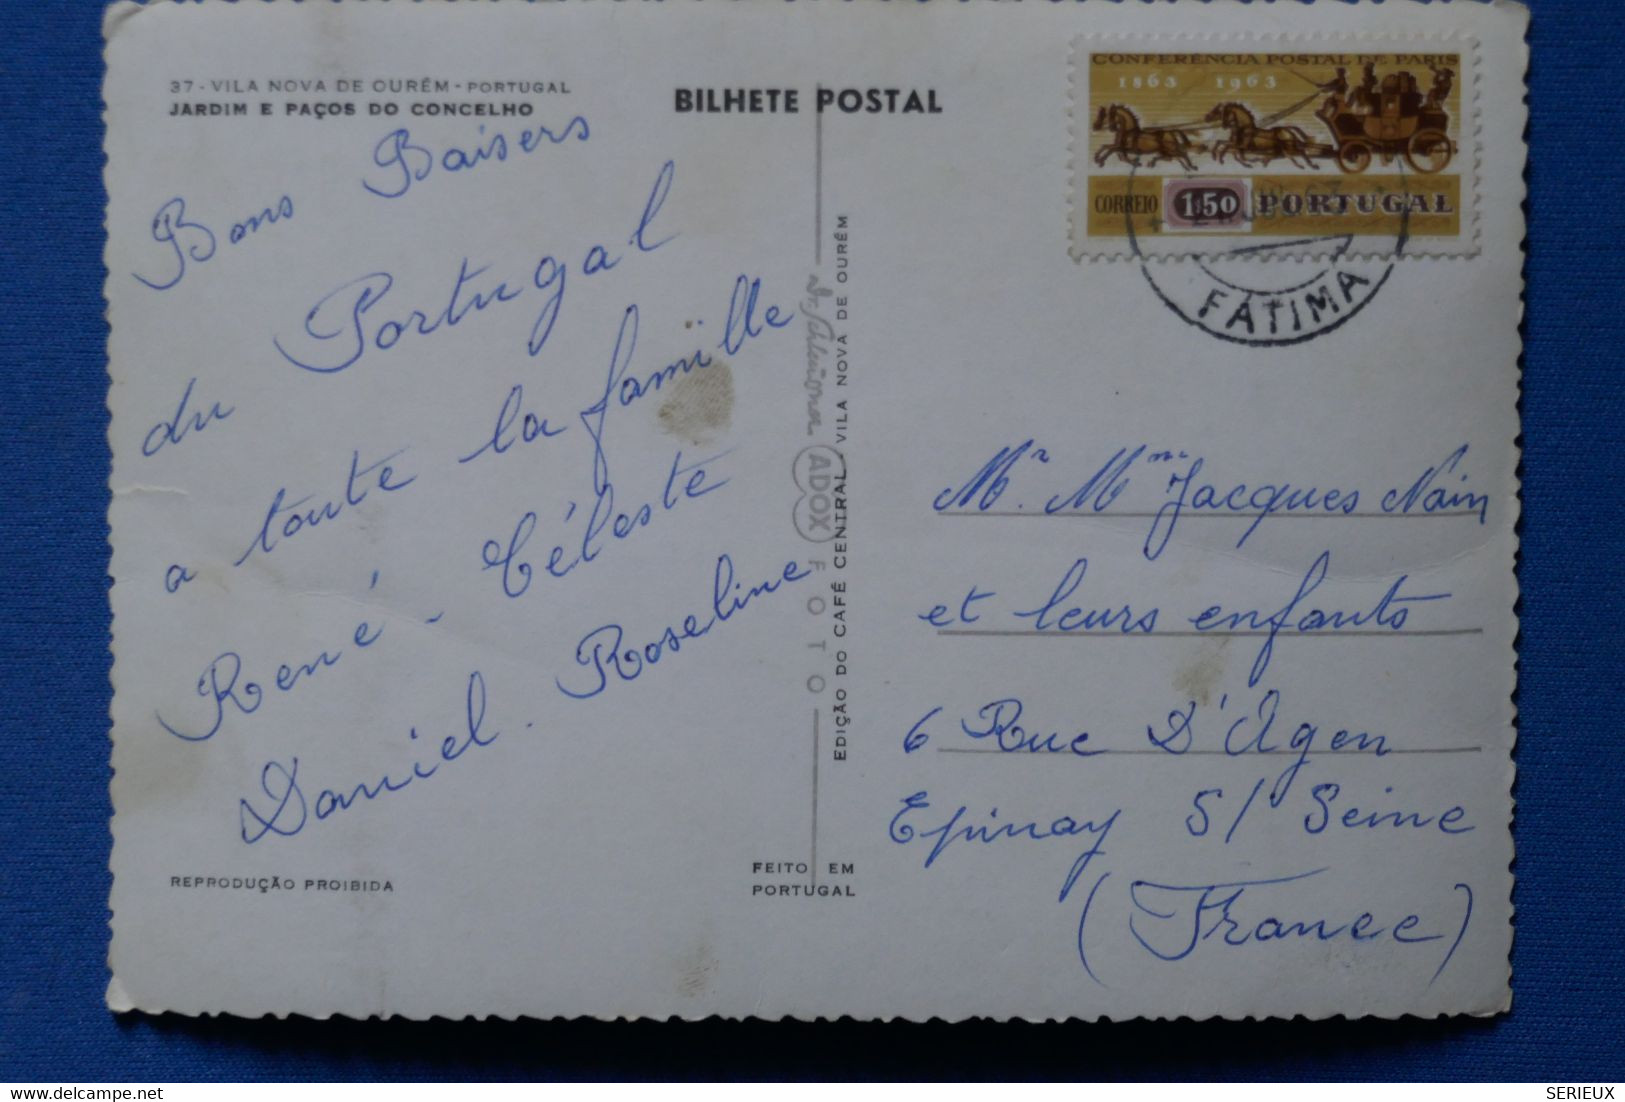 37 - VILA NOVA DE OURÉM - PORTUGAL
JARDIM E PAÇOS DO CONCELHO
BILHETE POSTAL
CONFERENCIA POSTAL DE PARIS
1863 1963
CORREIO 1$50 PORTUGAL
FÁTIMA
Bons Baisers
du Portugal
a toute la famille
René - Céleste
Daniel. Roseline
ADOX FOTO
EDIÇÃO DO CAFÉ CENTRAL - VILA NOVA DE OURÉM
Mr. Mme Jacques Nain
et leurs enfants
6 Rue D'Agen
Epinay S/ Seine
(France)
REPRODUÇÃO PROIBIDA
FEITO EM
PORTUGAL
SERIEUX